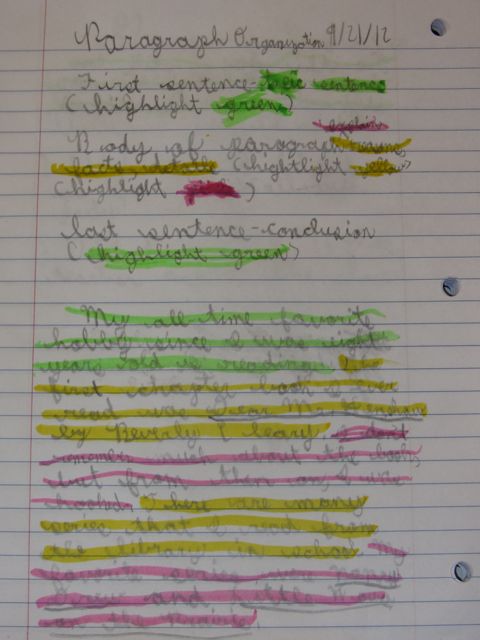 Paragraph Organization 9/21/12
First sentence-topic sentence
(highlight green)
explain
Body of paragraph-reasons,
facts, details (hightlight yellow)
(highlight pink)
last sentence-conclusion
(highlight green)
My all-time favorite
hobby since I was eight
years old is reading. The
first chapter book I ever
read was Dear Mr. Henshaw
by Beverly Cleary. I don't
remember much about the book,
but from then on, I was
hooked. There are many
series that I read from
the library in school. My
favorite series was Nancy
Drew and Little House
on the Prairie.